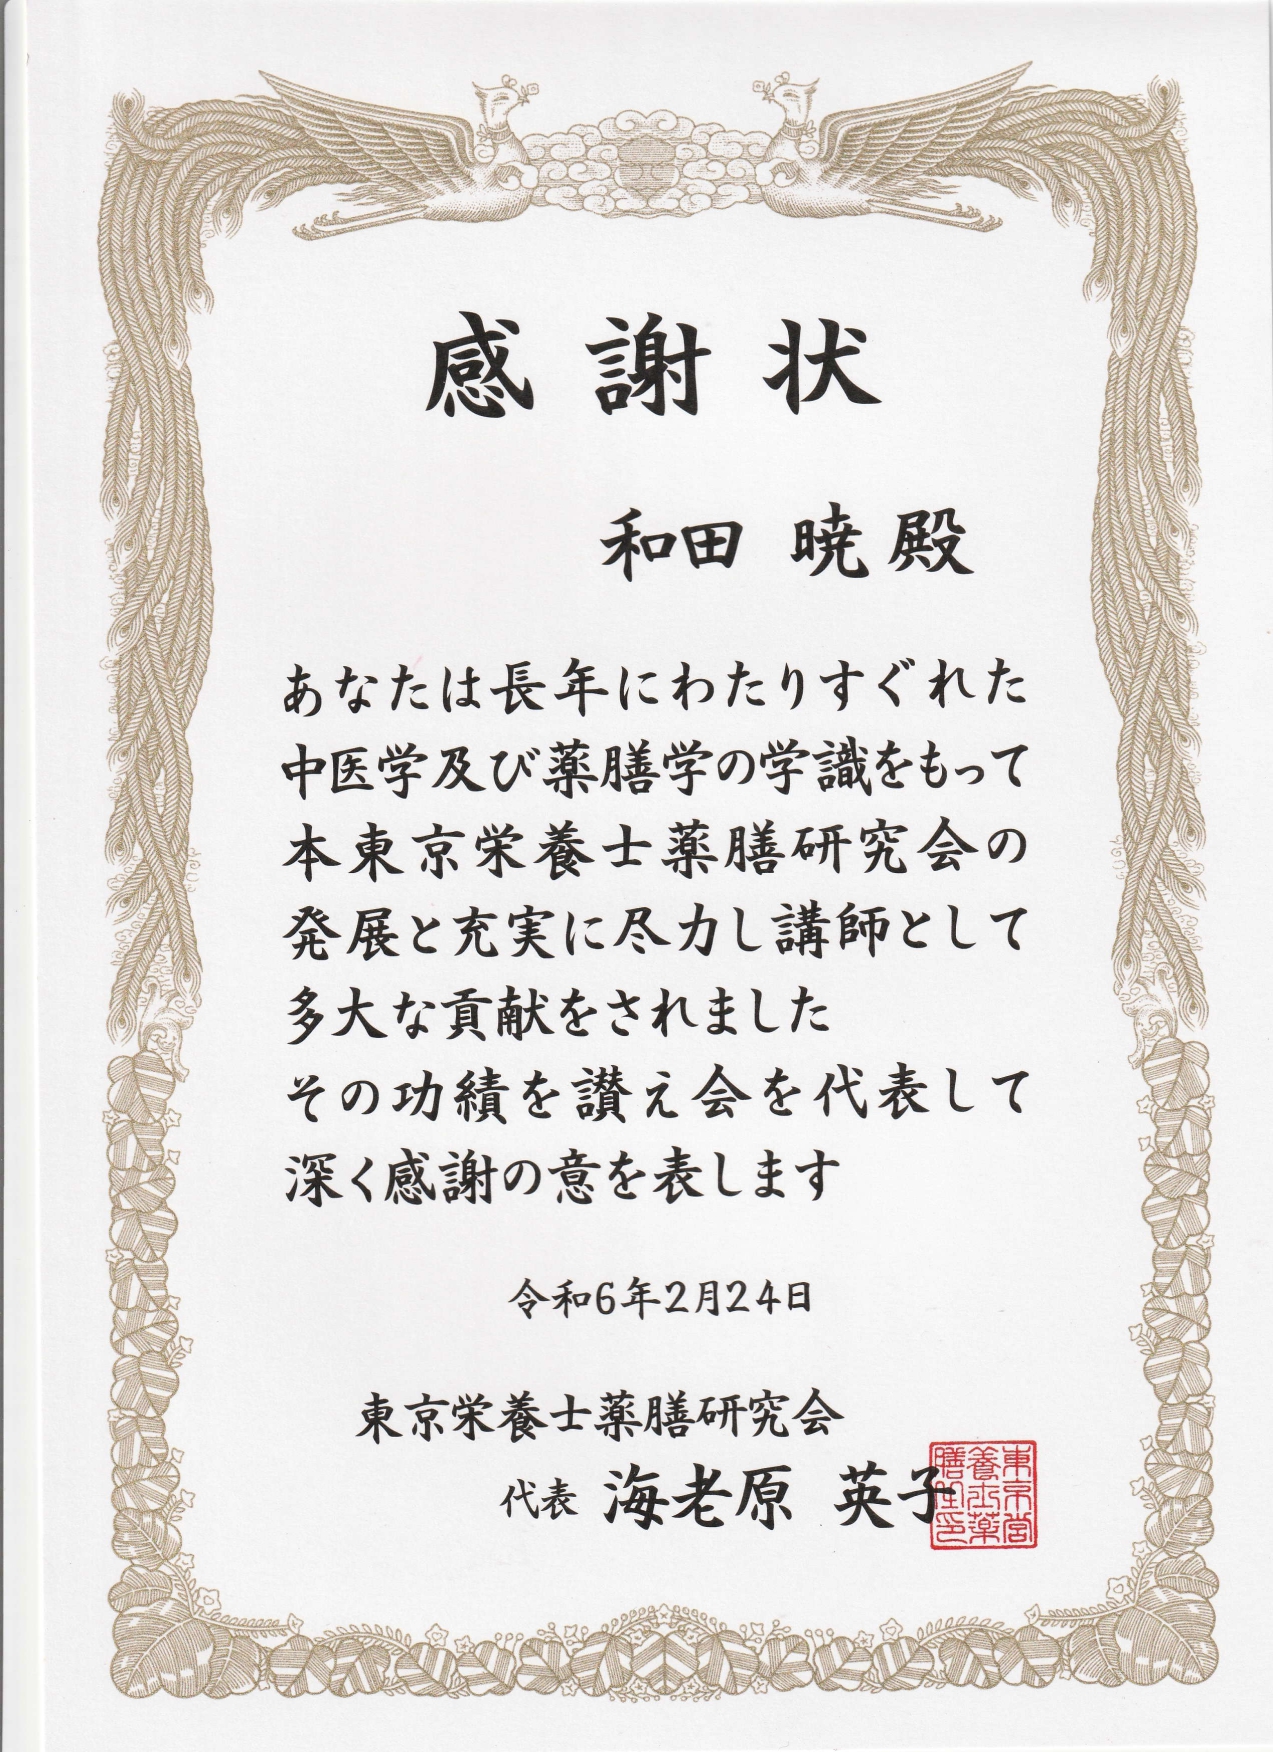 感謝状
和田 暁 殿
あなたは長年にわたりすぐれた
中医学及び薬膳学の学識をもって
本東京栄養士薬膳研究会の
発展と充実に尽力し講師として
多大な貢献をされました
その功績を讃え会を代表して
深く感謝の意を表します
令和6年2月24日
東京栄養士薬膳研究会
代表 海老原 英子